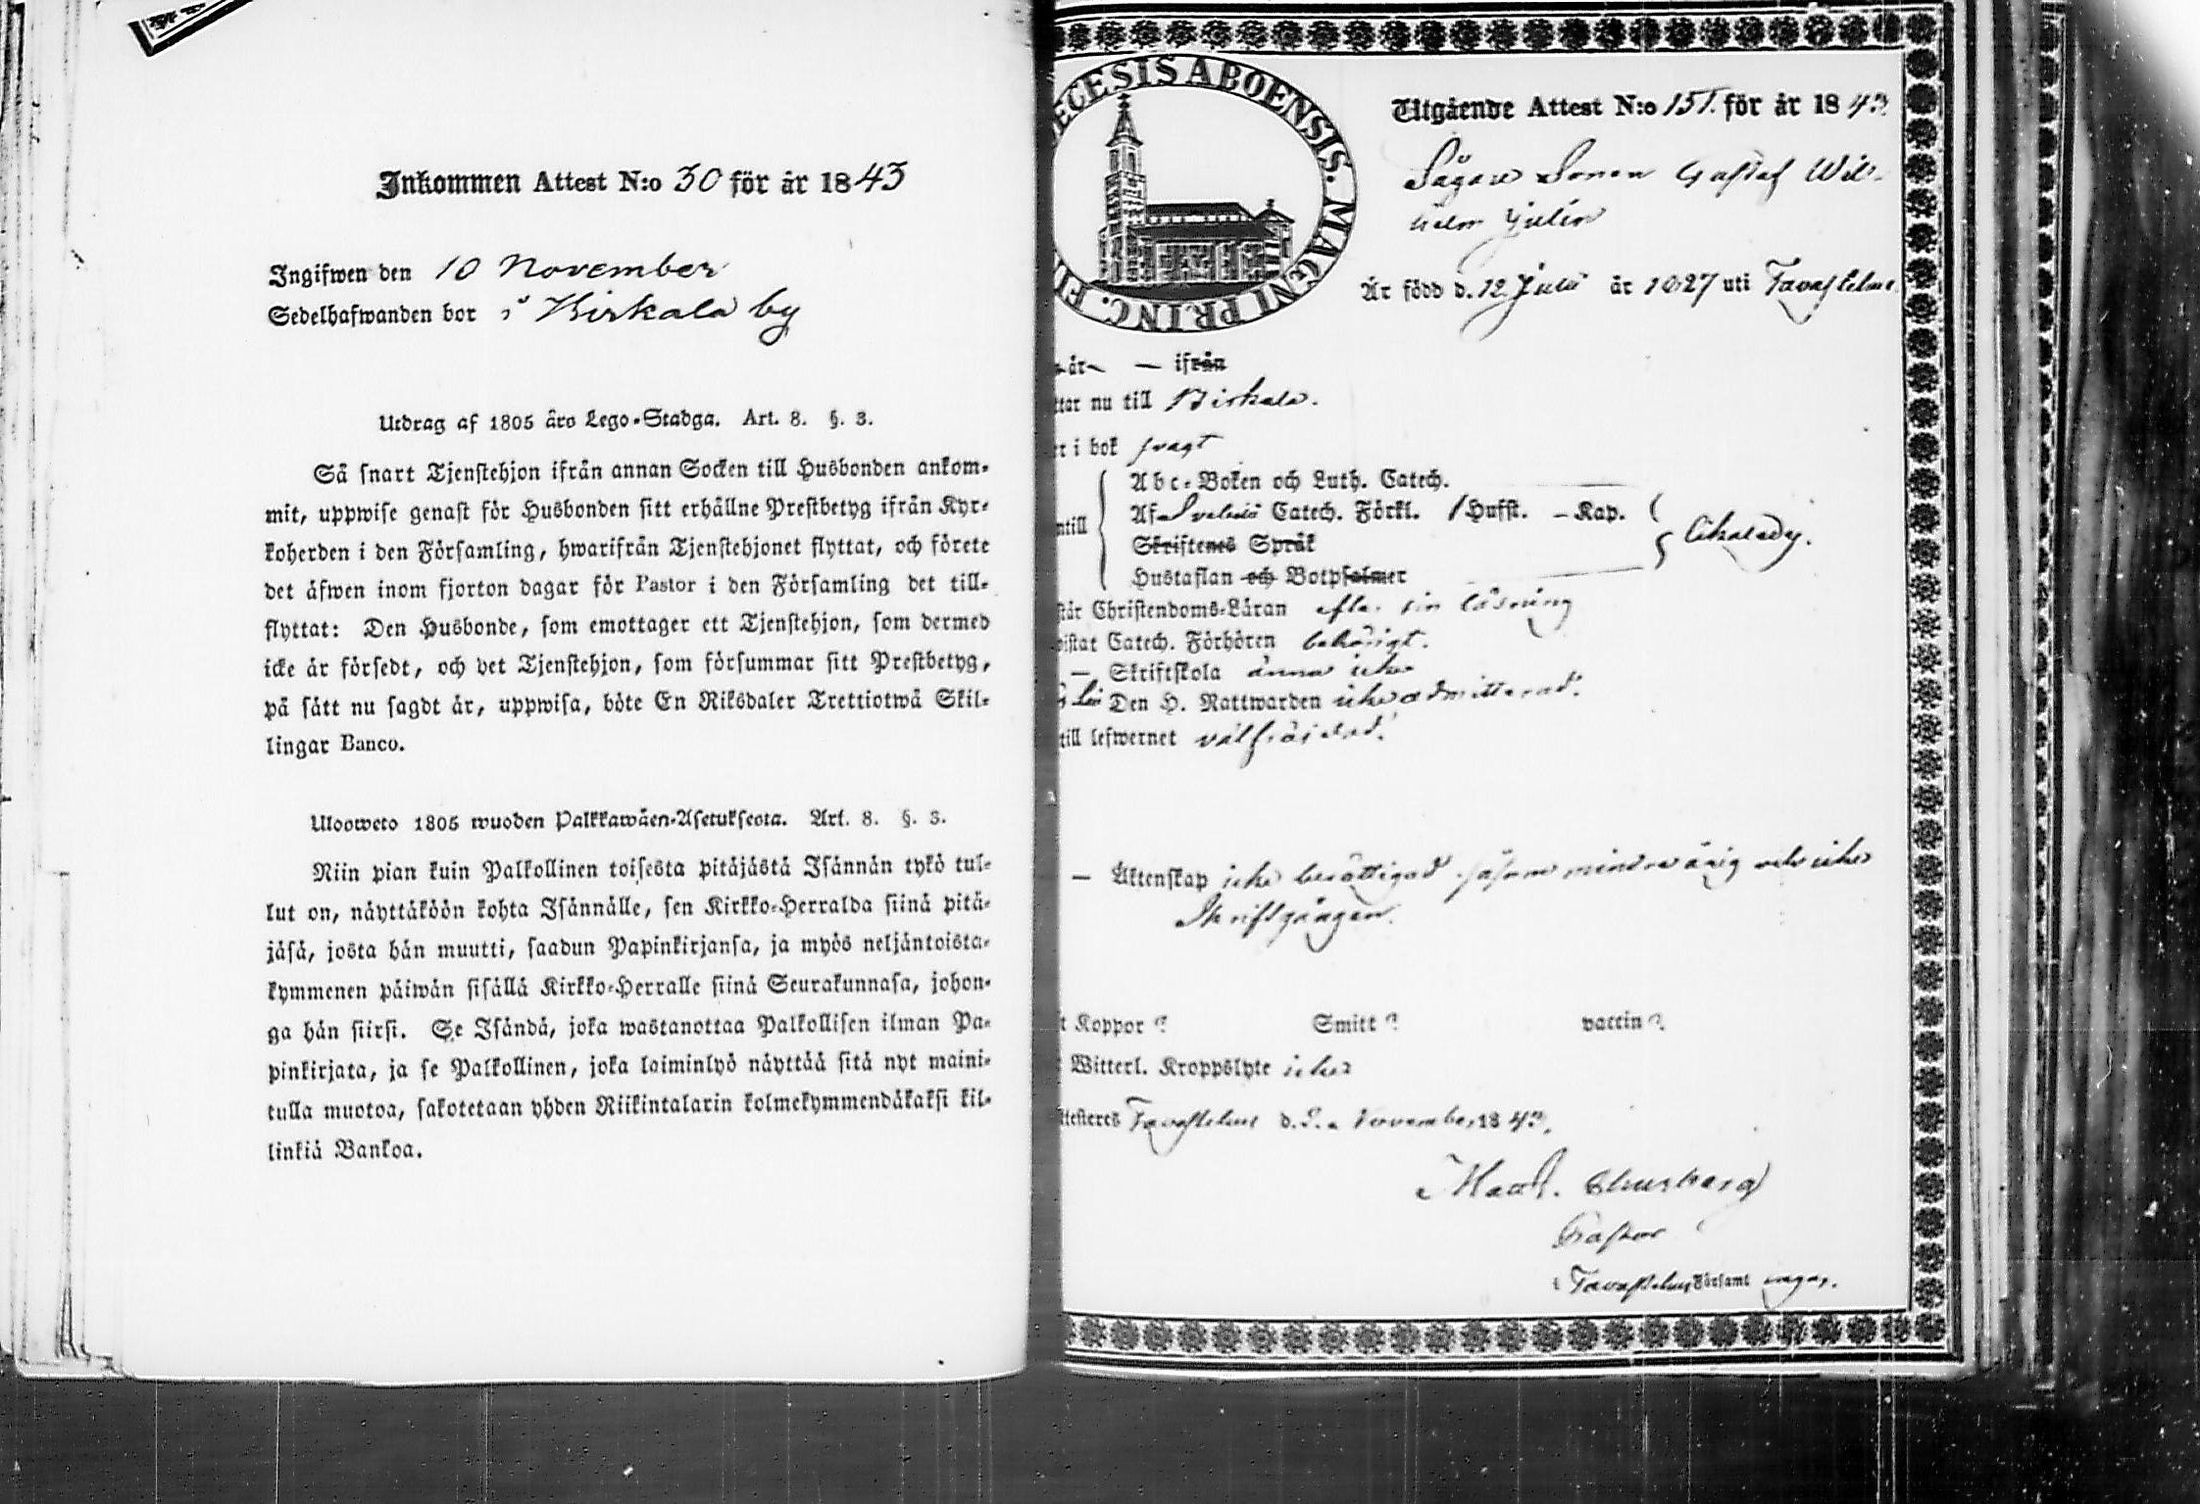 Inkommen Attest N:o 30 för år 1843
Ingifwen den 10 November
Sedelhafwanden bor i Birkala by
Utdrag af 1805 års Lego-Stadga. Art. 8. §. 3.
Så snart Tjenstehjon ifrån annan Socken till Husbonden ankom-
mit, uppwise genast för Husbonden sitt erhållne Prestbetyg ifrån Kyr-
koherden i den Församling, hwarifrån Tjenstehjonet flyttat, och förete
det äfwen inom fjorton dagar för Pastor i den Församling det till-
flyttat: Den Husbonde, som emottager ett Tjenstehjon, som dermed
icke är försedt, och det Tjenstehjon, som försummar sitt Prestbetyg,
på sätt nu sagdt är, uppwisa, böte En Riksdaler Trettiotwå Skil-
lingar Banco.
Ulosweto 1805 wuoden Palkkawäen-Asetuksesta. Art. 8. §. 3.
Niin pian kuin Palkollinen toisesta pitäjästä Isännän tykö tul-
lut on, näyttäköön kohta Isännälle, sen Kirkko-Herralda siinä pitä-
jäsä, josta hän muutti, saadun Papinkirjansa, ja myös neljäntoista-
kymmenen päiwän sisällä Kirkko-Herralle siinä Seurakunnasa, johon-
ga hän siirsi. Se Isändä, joka wastanottaa Palkollisen ilman Pa-
pinkirjata, ja se Palkollinen, joka laiminlyö näyttää sitä nyt maini-
tulla muotoa, sakotetaan yhden Riikintalarin kolmekymmendäkaksi kil-
linkiä Bankoa.
ECESIS ABOENSIS. MAGNI PRINC. FI
Utgående Attest N:o 151. för år 1843.
Sonen Gustaf Wil-
helm Julin
Är född d. 12 Juli år 1827 uti Tavastehus
år — ifrån
ttar nu till Birkala.
r i bok svagt
Abc-Boken och Luth. Catech.
Af Svebelii Catech. Förkl. Husst. – Kap.
ntill
Skriftenes Språk
Hustaflan och Botpsalmer
står Christendoms-Läran efter sin läsning
vistat Catech. Förhören behörigt.
— Skriftskola ännu icke
Den H. Nattwarden icke admitterad.
till lefwernet välfräjdad.
— Äktenskap icke berättigad såsom minderårig och icke
Skriftgången.
t Koppor ? Smitt ? vaccin ?
Witterl. Kroppslyte icke
ttesteres Tavastehus d. November 1843.
Pastor
i Tavastehus Församl ingar.